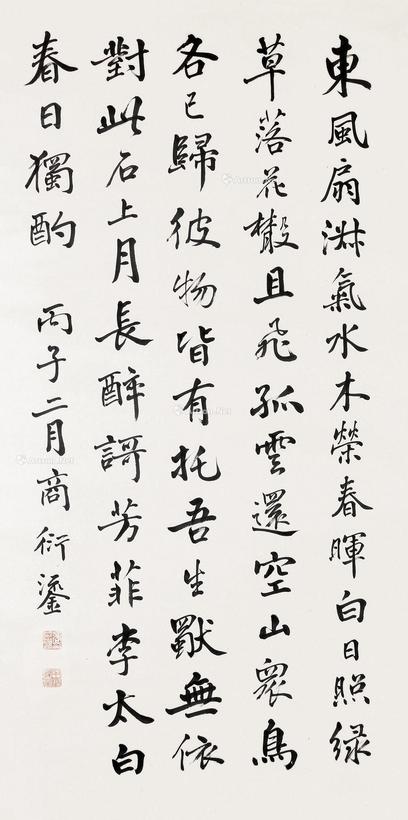 東風扇淑氣水木榮春暉白日照緑
草落花散且飛孤雲還空山衆鳥
各已歸彼物皆有托吾生獨無依
對此石上月長醉謌芳菲李太白
春日獨酌 丙子二月商衍鎏